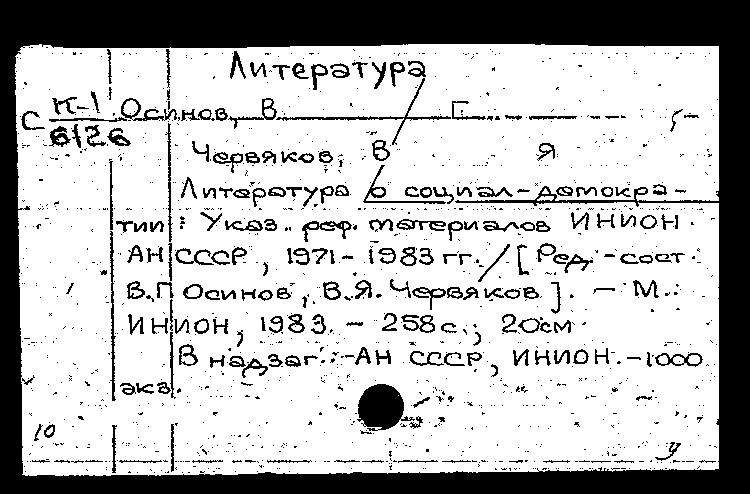 Литература
С К-1 Осинов, В Г 5-
6126
Червяков, В Я
Литература о социал-демокра-
тии : Указ. реф. материалов ИНИОН
АН СССР, 1971-1983 гг. / [Ред.-сост.
В.Г. Осинов, В.Я. Червяков]. - М.:
ИНИОН, 1983. - 258 с.; 20см
В надзаг.: АН СССР, ИНИОН.-1000
экз.
10 У